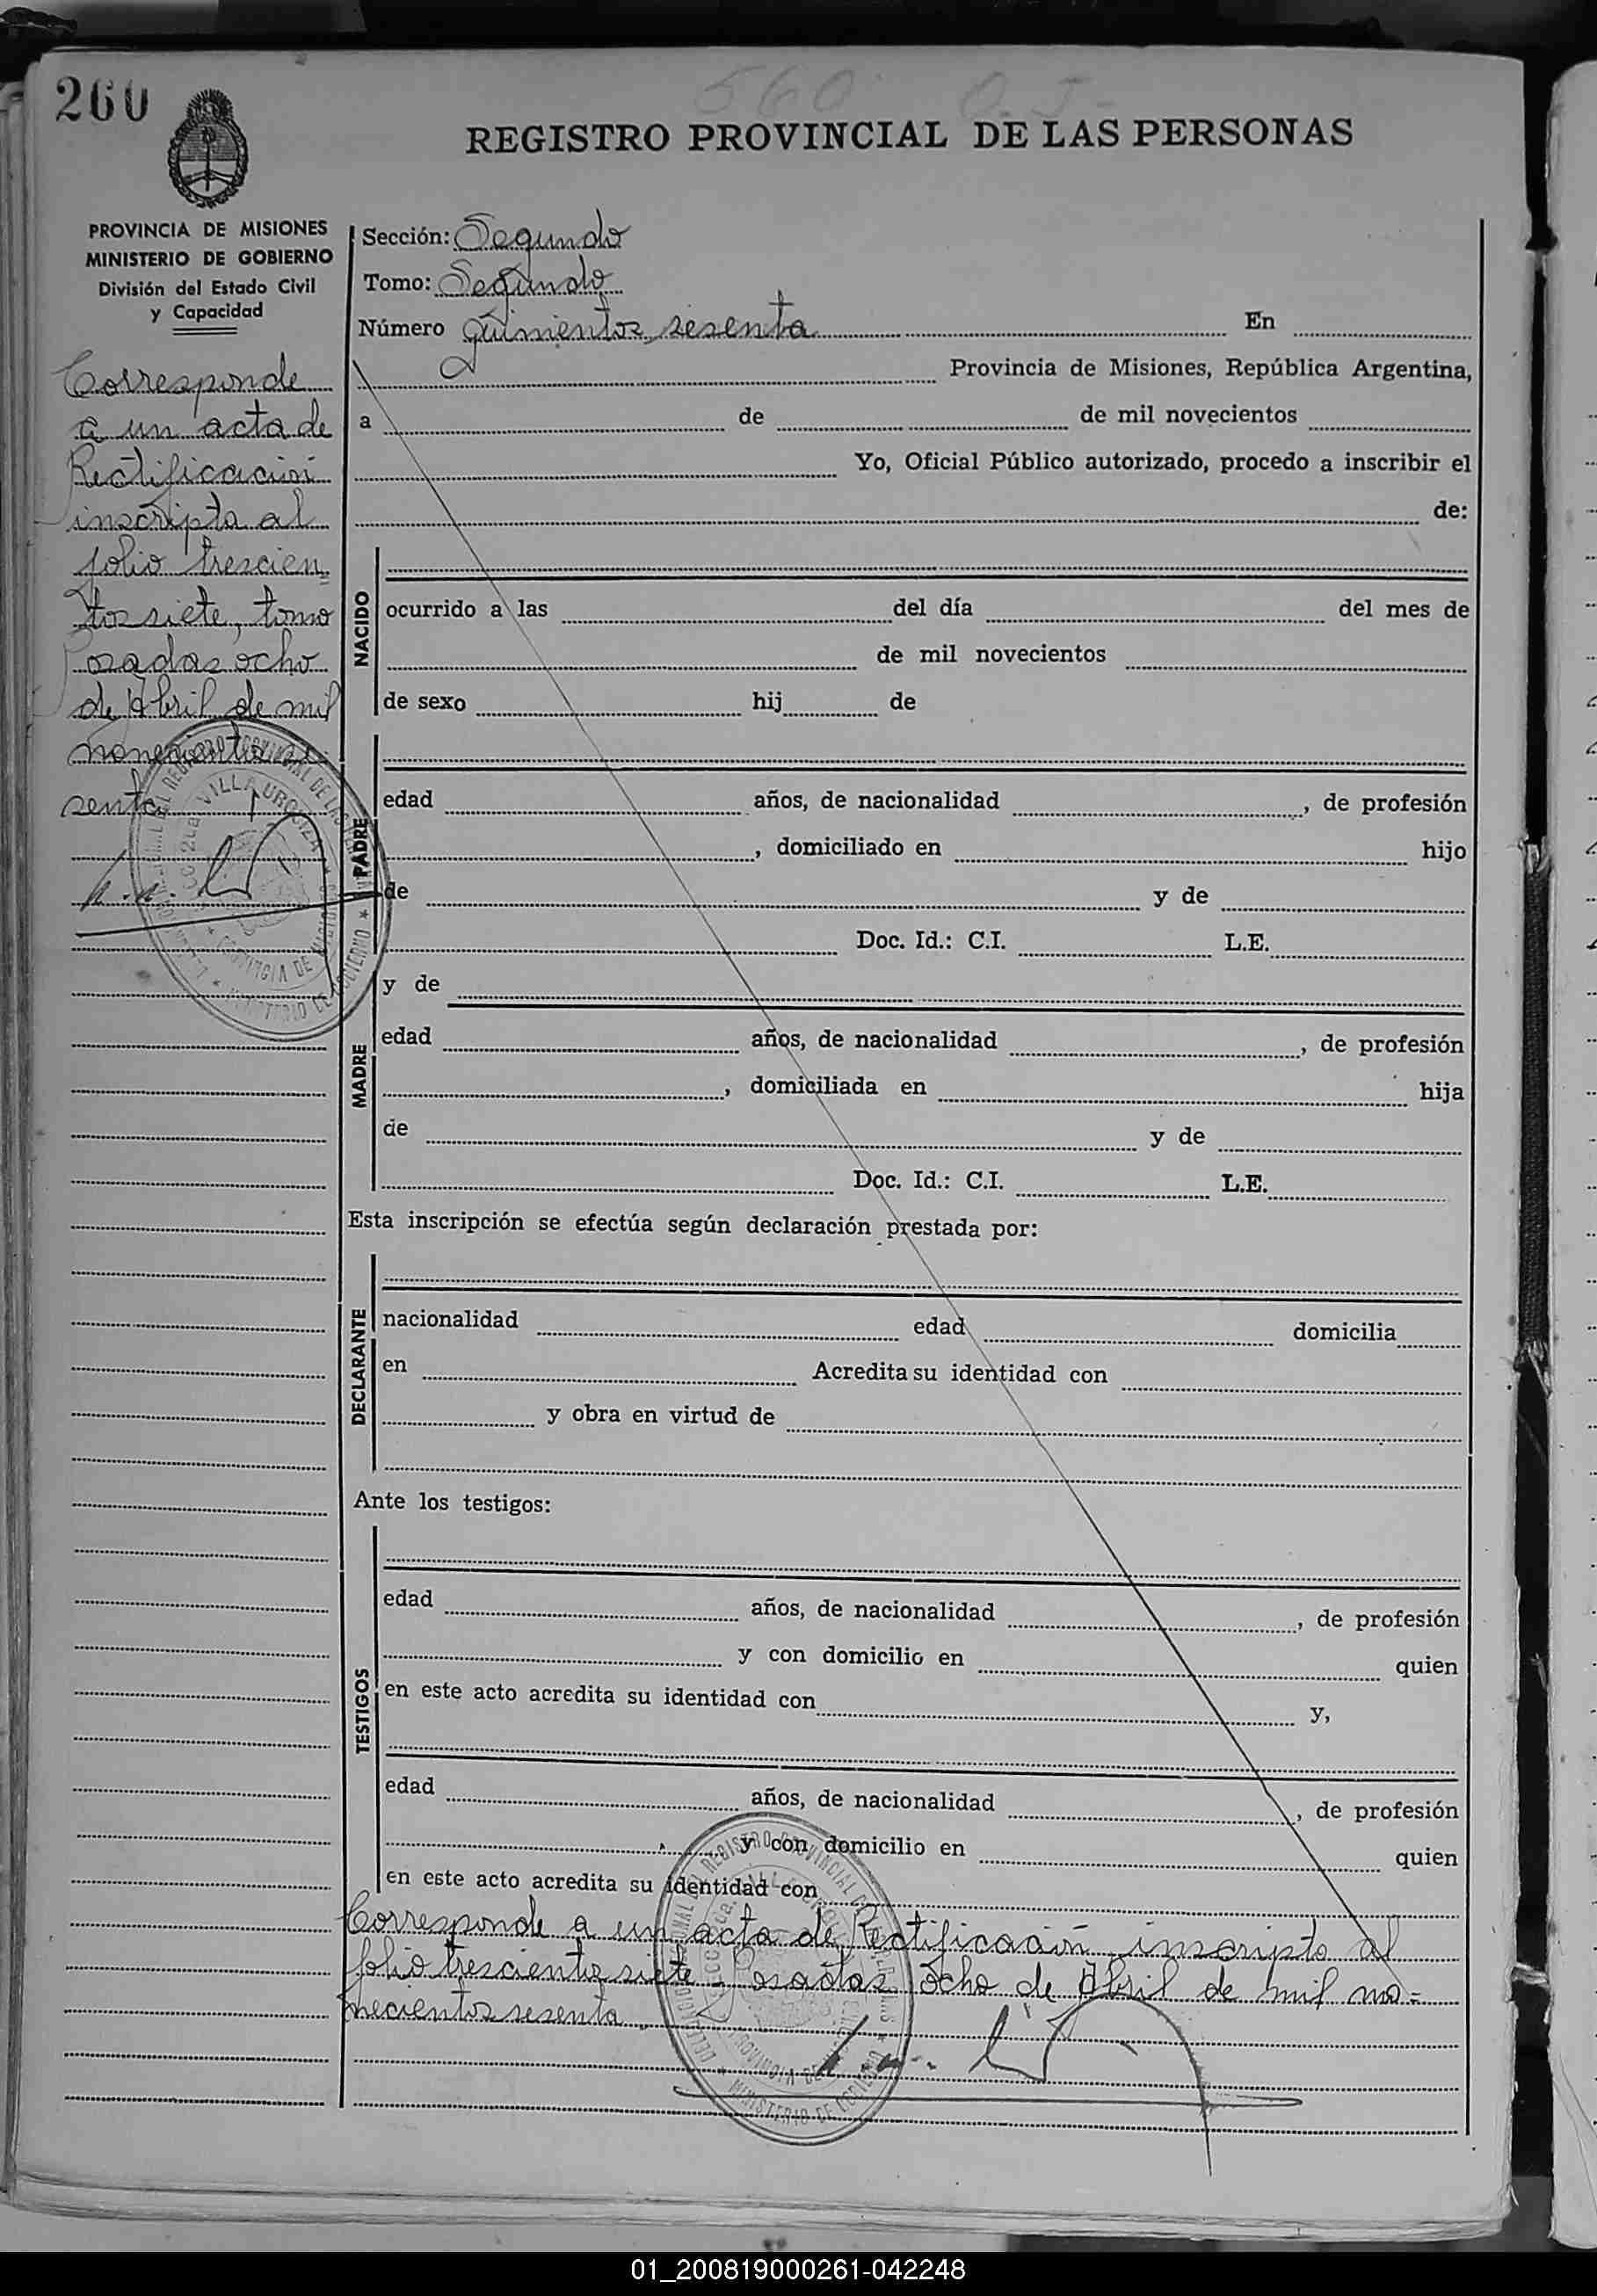 260
560 0.5-
REGISTRO PROVINCIAL DE LAS PERSONAS
PROVINCIA DE MISIONES
MINISTERIO DE GOBIERNO
División del Estado Civil
y Capacidad
Corresponde
a un acta de
Rectificación
inscripta al
folio trescien
tos siete, tomo
Posadas ocho
de Abril de mil
novecientos se
senta
Sección: Segundo
Tomo: Segundo
Número quinientos sesenta En
Provincia de Misiones, República Argentina,
a de de mil novecientos
Yo, Oficial Público autorizado, procedo a inscribir el
de:
NACIDO
ocurrido a las del día del mes de
de mil novecientos
de sexo hij de
PADRE
edad años, de nacionalidad , de profesión
, domiciliado en hijo
de y de
Doc. Id.: C.I. L.E.
y de
MADRE
edad años, de nacionalidad , de profesión
, domiciliada en hija
de y de
Doc. Id.: C.I. L.E.
Esta inscripción se efectúa según declaración prestada por:
DECLARANTE
nacionalidad edad domicilia
en Acredita su identidad con
y obra en virtud de
Ante los testigos:
TESTIGOS
edad años, de nacionalidad , de profesión
y con domicilio en quien
en este acto acredita su identidad con y,
edad años, de nacionalidad , de profesión
y con domicilio en quien
en este acto acredita su identidad con
Corresponde a un acta de Rectificación inscripta al
folio trescientos siete - Posadas, ocho de Abril de mil no=
vecientos sesenta
REGISTRO PROVINCIAL DE LAS
VILLA URQUIZA
PROVINCIA DE MISIONES
MINISTERIO DE GOBIERNO
REGISTRO PROVINCIAL DE LAS PERSONAS
PROVINCIA DE
MINISTERIO DE GOBIERNO
01_200819000261-042248